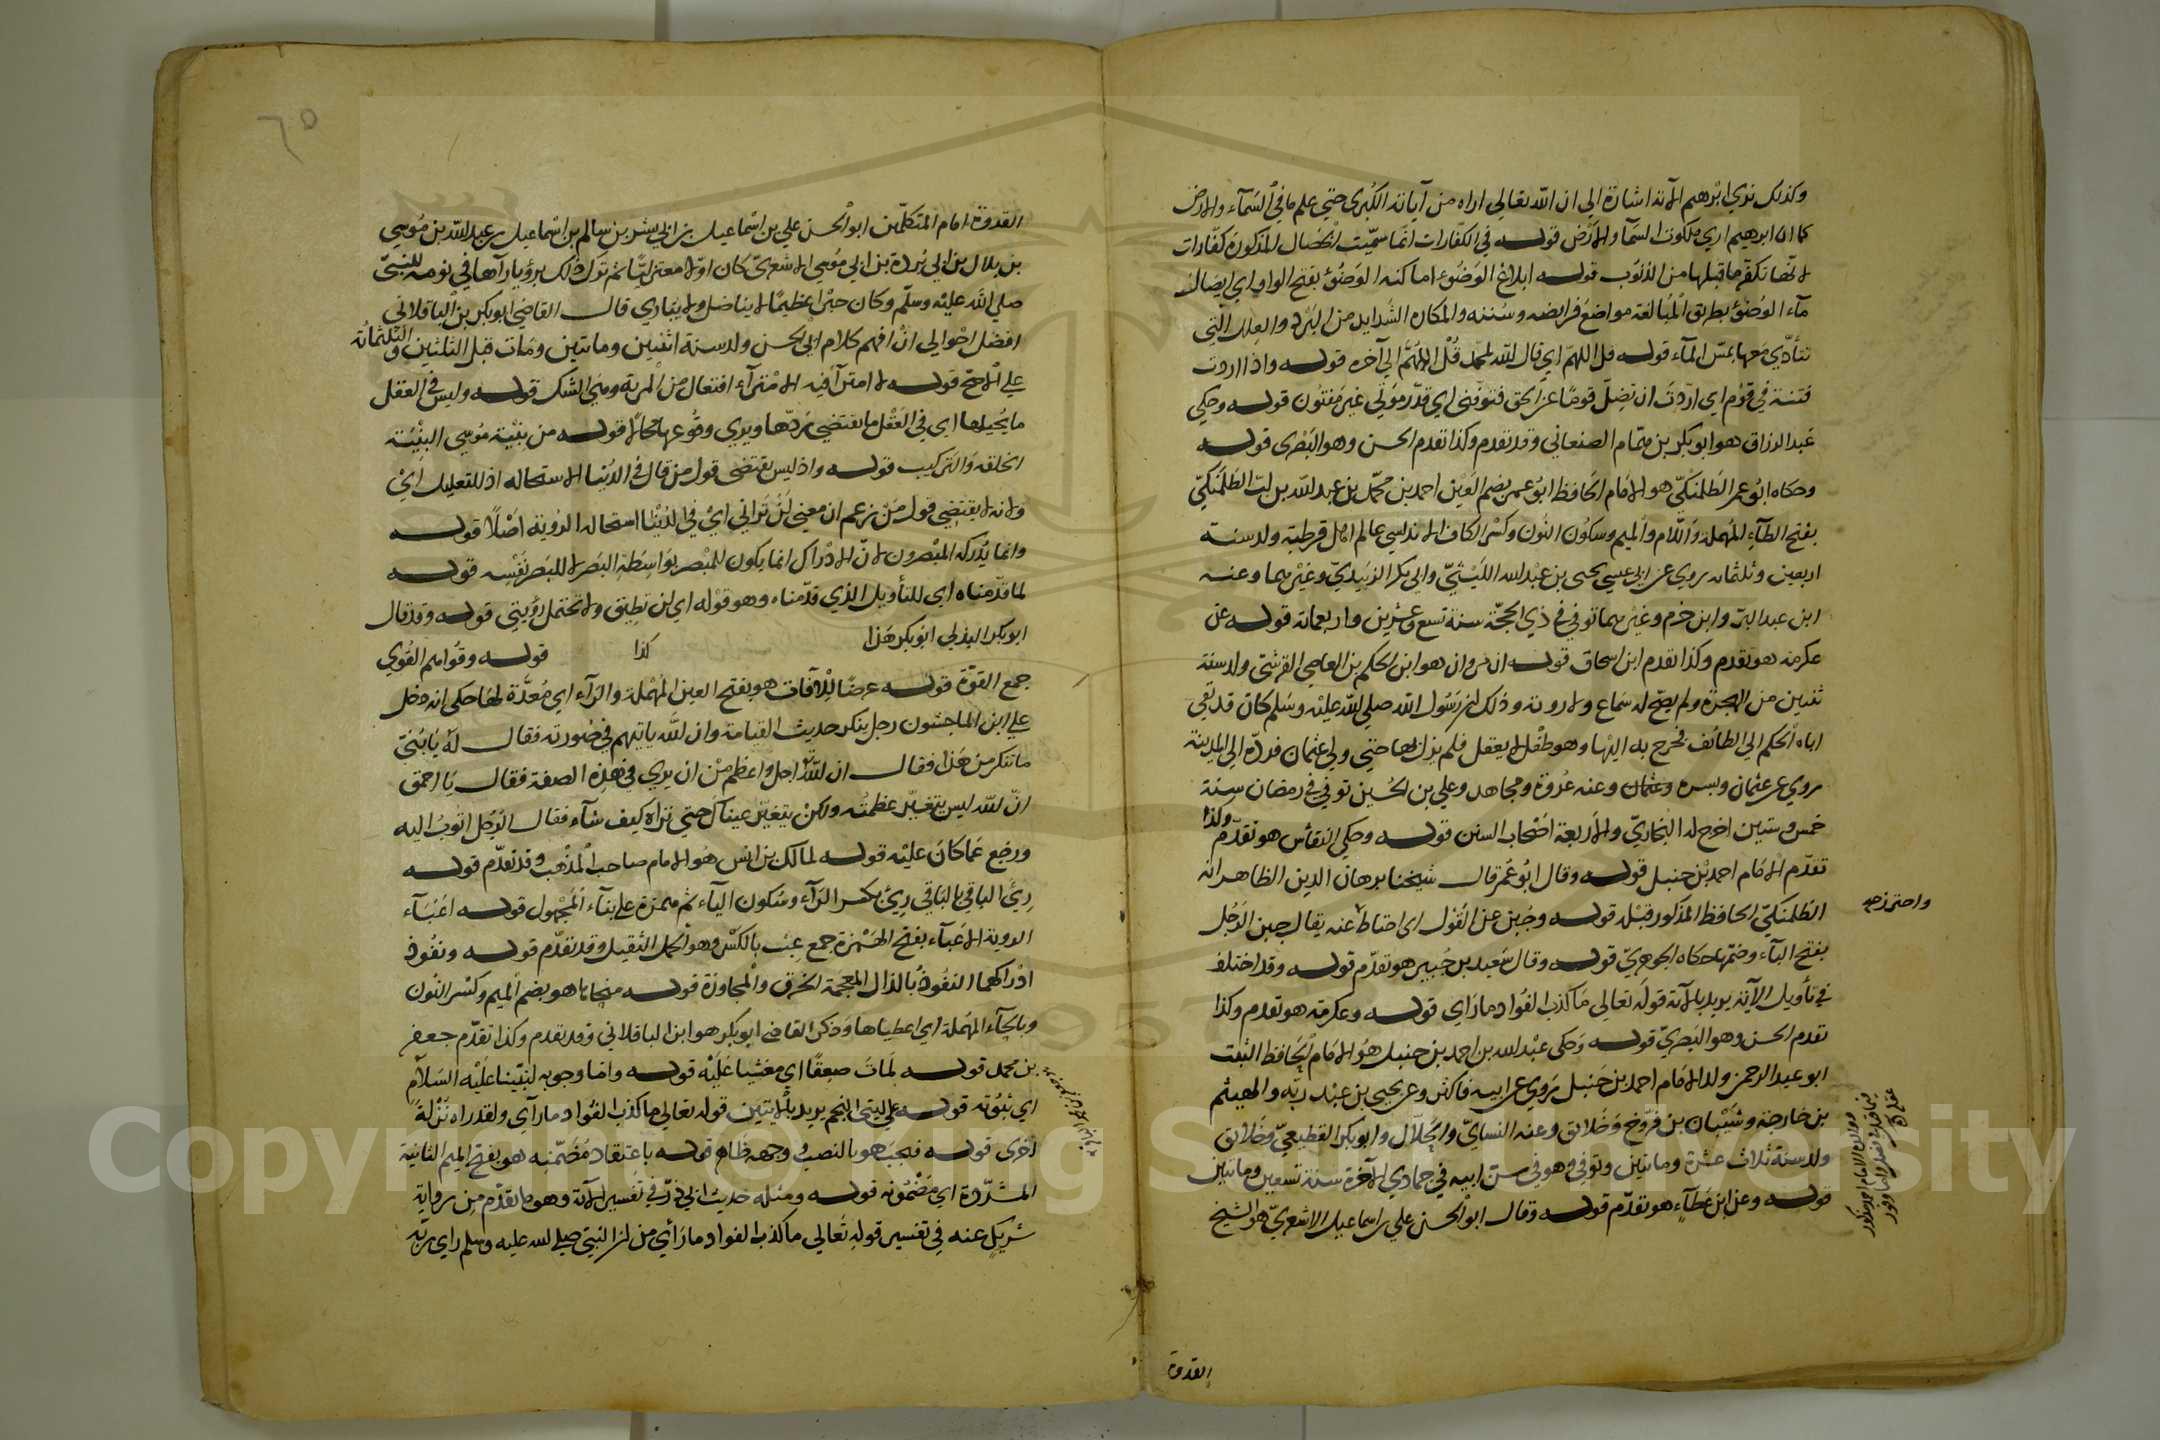 وكذلك نري ابرهيم الآية اشارة الي ان الله تعالي اراه من آياته الكبرى حتي علم ما في السمآء والارض
كما ان ابرهيم اري ملكوت السمآ والارض قوله في الكفارات انما سميت الخصال المذكورة كفارات
لانها تكفر ما قبلها من الذنوب قوله ابلاغ الوضوء اماكنه الوضوء بفتح الواو اي ايصال
مآء الوضوء بطريق المبالغة مواضع فرايضه وسننه والمكاره الشدايد من البرد والعلل التي
تتأذي معها بمس المآء قوله قل اللهم اي قال الله لمحمد قل اللهم الي آخره قوله واذا اردت
فتنة في قوم اي اردت ان تضل قوما عن الحق فتوفني اي قدر موتي غير مفتون قوله وحكي
عبد الرزاق هو ابو بكر بن همام الصنعاني وقد تقدم وكذا تقدم الحسن وهو البصري قوله
وحكاه ابو عمر الطلمنكي هو الامام الحافظ ابو عمر بضم العين احمد بن محمد بن عبد الله بن لب الطلمنكي
بفتح الطآء المهملة واللام والميم وسكون النون وكسر الكاف الاندلسي عالم اهل قرطبة ولد سنة
اربعين وثلثمائه روي عن ابي عيسي يحيى بن عبد الله الليثي وابي بكر الزبيدي وغيرهما وعنه
ابن عبد البر وابن حزم وغيرهما توفي في ذي الحجة سنة تسع وعشرين واربعمائة قوله عن
عكرمة هو تقدم وكذا تقدم ابن اسحاق قوله ان مروان هو ابن الحكم بن العاصي القرشي ولد سنة
ثنتين من الهجرة ولم يصح له سماع ولا روية وذلك لان رسول الله صلي الله عليه وسلم كان قد نفي
اباه الحكم الي الطائف فخرج به اليها وهو طفل لا يعقل فلم يزل بها حتي ولي عثمان فرده الي المدينة
روي عن عثمان وبسره وعثمان وعنه عروة ومجاهد وعلي بن الحسين توفي في رمضان سنة
خمس وستين اخرج له البخاري والاربعة اصحاب السنن قوله وحكي النقاش هو تقدم وكذا
تقدم الامام احمد بن حنبل قوله وقال ابو عمر قال شيخنا برهان الدين الظاهر انه
الطلمنكي الحافظ المذكور قبله قوله وجبن عن القول اي احتاط عنه يقال جبن الرجل
بفتح البآء وضمها حكاه الجوهري قوله وقال سعيد بن جبير هو تقدم قوله وقد اختلف
في تأويل الآية يريد بالآية قوله تعالي ما كذب الفواد ما راي قوله وعكرمة هو تقدم وكذا
تقدم الحسن وهو البصري قوله وحكى عبد الله بن احمد بن حنبل هو الامام الحافظ الثبت
ابو عبد الرحمن ولد الامام احمد بن حنبل روي عن ابيه فاكثر وعن يحيى بن عبد ربه والهيثم
بن خارجة وشيبان بن فروخ وخلائق وعنه النسائي والخلال وابو بكر القطيعي وخلائق
ولد سنة ثلاث عشرة ومائتين وتوفي وهو في سن ابيه في جمادي الآخرة سنة تسعين ومائتين
قوله وعن ابن عطآء هو تقدم قوله وقال ابو الحسن علي بن اسماعيل الاشعري هو الشيخ
القدوة
القدوة امام المتكلمين ابو الحسن علي بن اسماعيل بن ابي بشر بن سالم بن اسماعيل بن عبد الله بن موسي
بن بلال بن ابي بردة بن ابي موسي الاشعري كان اولا معتزليا ثم ترك ذلك برؤيا رآها في نومه للنبي
صلي الله عليه وسلم وكان حبرا عظيما لا يناضل ولا يبادي قال القاضي ابو بكر بن الباقلاني
افضل احوالي ان افهم كلام ابي الحسن ولد سنة اثنين ومائتين ومات قبل الثلثين والثلثمائة
علي الاصح قوله لا امترآ فيه الامترآء افتعال من المرية وهي الشك قوله وليس في العقل
ما يحيلها اي في العقل ما يقتضي ردها ويري وقوعها محالا قوله من بنية موسي البنية
الخلقة والتركيب قوله واذ ليس يقتضي قول من قال في الدنيا الاستحاله اذ للتعليل اي
ولانه لا يقتضي قول من زعم ان معني لن تراني اي في الدنيا استحالة الروية اصلا قوله
وانما يدركه المبصرون لان الادراك انما يكون للمبصر بواسطة البصر لا للبصر نفسه قوله
لما قدمناه اي للتأويل الذي قدمناه وهو قوله اي لن تطيق ولا تحتمل رؤيتي قوله وقد قال
ابو بكر الهذلي ابو بكر هذا كذا قوله وقواهم القوي
جمع القوة قوله عرضا للآفات هو بفتح العين المهملة والرآء اي معدة لها حكي انه دخل
علي ابن الماجشون رجل ينكر حديث القيامة وان الله ياتيهم في صورته فقال له يا بني
ما تنكر من هذا فقال ان الله اجل واعظم من ان يري في هذه الصفة فقال يا احمق
ان الله ليس يتغير عظمته ولكن يتغير عيناك حتي تراه كيف شآء فقال الرجل اتوب اليه
ورجع عما كان عليه قوله لمالك بن انس هو الامام صاحب المذهب وقد تقدم قوله
رئ الباقي بالباقي رئ بكسر الرآء وسكون اليآء ثم همزة علي بنآء المجهول قوله اعبآء
الروية الاعبآء بفتح الهمزة جمع عبء بالكسر وهو الحمل الثقيل وقد تقدم قوله ونفوذ
ادراكهما النفوذ بالذال المعجمة الخرق والمجاوزة قوله منحاها هو بضم الميم وكسر النون
وبالحآء المهملة اي اعطياها وذكر القاضي ابو بكر هو ابن الباقلاني وقد تقدم وكذا تقدم جعفر
بن محمد قوله لمات صعقا اي مغشيا عليه قوله واما وجوبه لنبينا عليه السلام
اي ثبوته قوله علي آيتي النجم يريد بالايتين قوله تعالي ما كذب الفواد ما رآي ولقد رآه نزلة
اخري قوله فيجب هو بالنصب ووجهه ظاهر قوله باعتقاد مضمنه هو بفتح الميم الثانية
المشددة اي مضمونه قوله ومثله حديث ابي ذر في تفسير الآية وهو ما تقدم من رواية
شريك عنه في تفسير قوله تعالي ما كذب الفواد ما رأي من ان النبي صلي الله عليه وسلم راي ربه
٦٥
Copyright © King Saud University